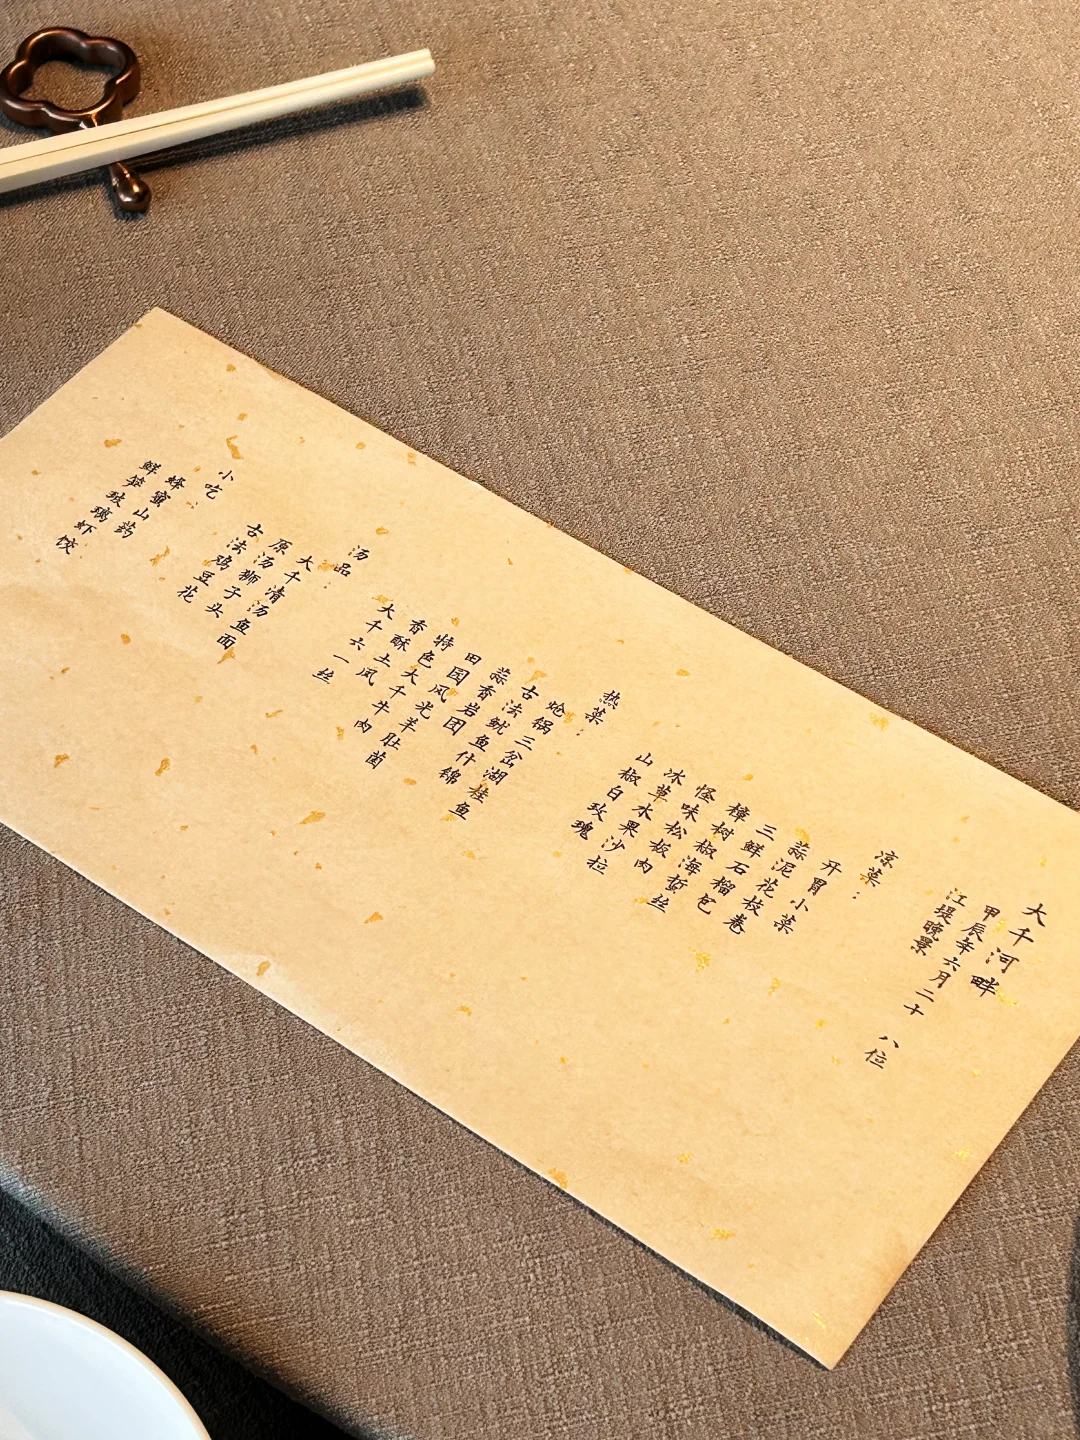 大千河畔
甲辰年六月二十 八位
江堤晚景
凉菜：
开胃小菜
蒜泥花枝卷
三鲜石榴包
樟树椒海蜇丝
怪味松板肉
冰草水果沙拉
山椒白玫瑰
热菜：
炝锅三岔湖桂鱼
古法鱿鱼什锦
蒜香岩团
田园风光羊肚菌
特色大千牛肉
香酥土凤
大千六一丝
汤品：
大千清汤鱼面
原汤狮子头
古法鸡豆花
小吃：
蜂蜜山药
鲜笋玻璃虾饺